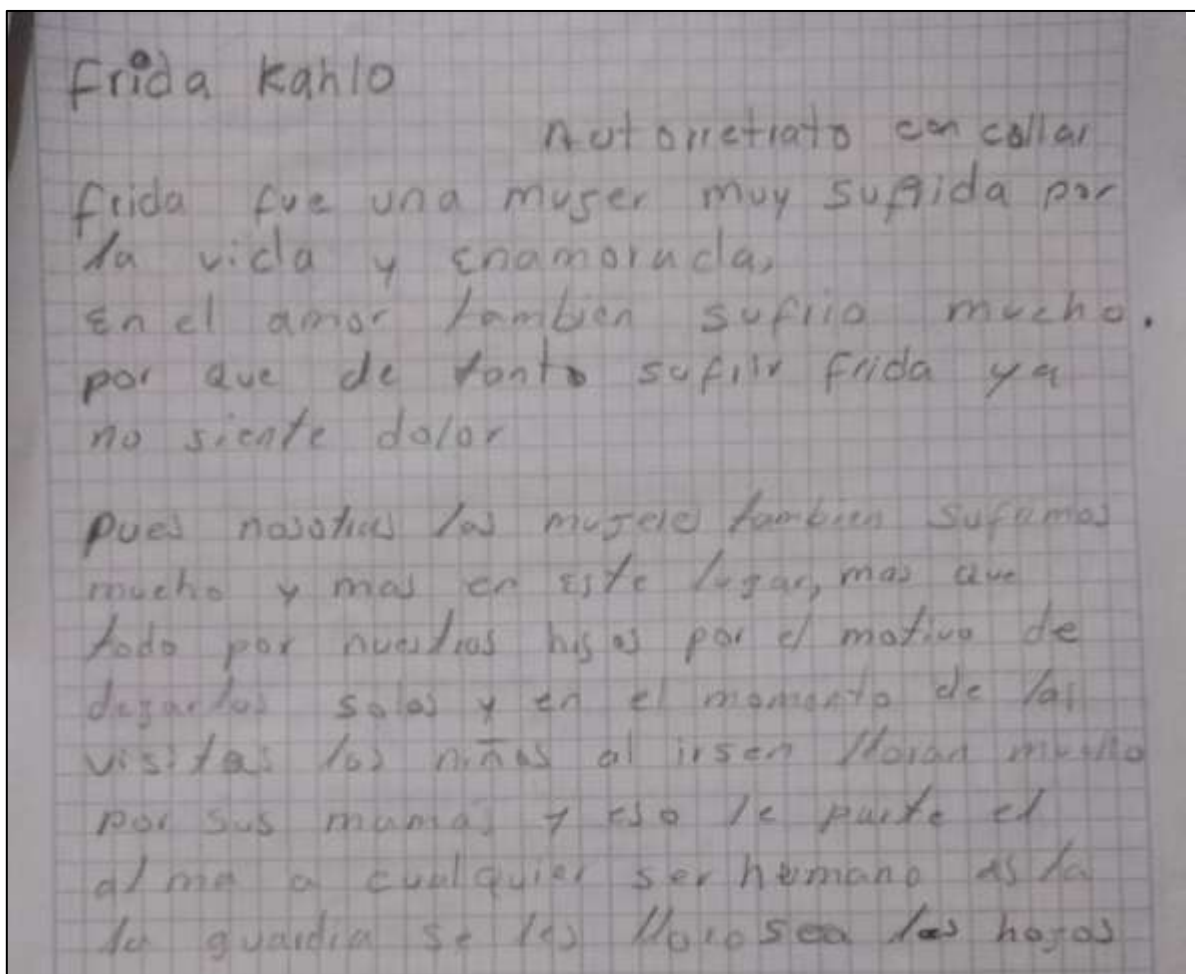 Frida Kahlo
Autorretrato con collar
frida fue una muger muy sufrida por
la vida y Enamorada,
En el amor tambien sufrio mucho.
por que de tanto sufrir frida ya
no siente dolor
pues nosotras las mugeres tambien sufrimos
mucho y mas en este lugar, mas que
todo por nuestros higos por el motivo de
degarlos solos y en el momento de las
visitas los niños al irsen lloran mucho
por sus mamas y eso le parte el
alma a cualquier ser humano asta
la guardia se les llorosea los hogos